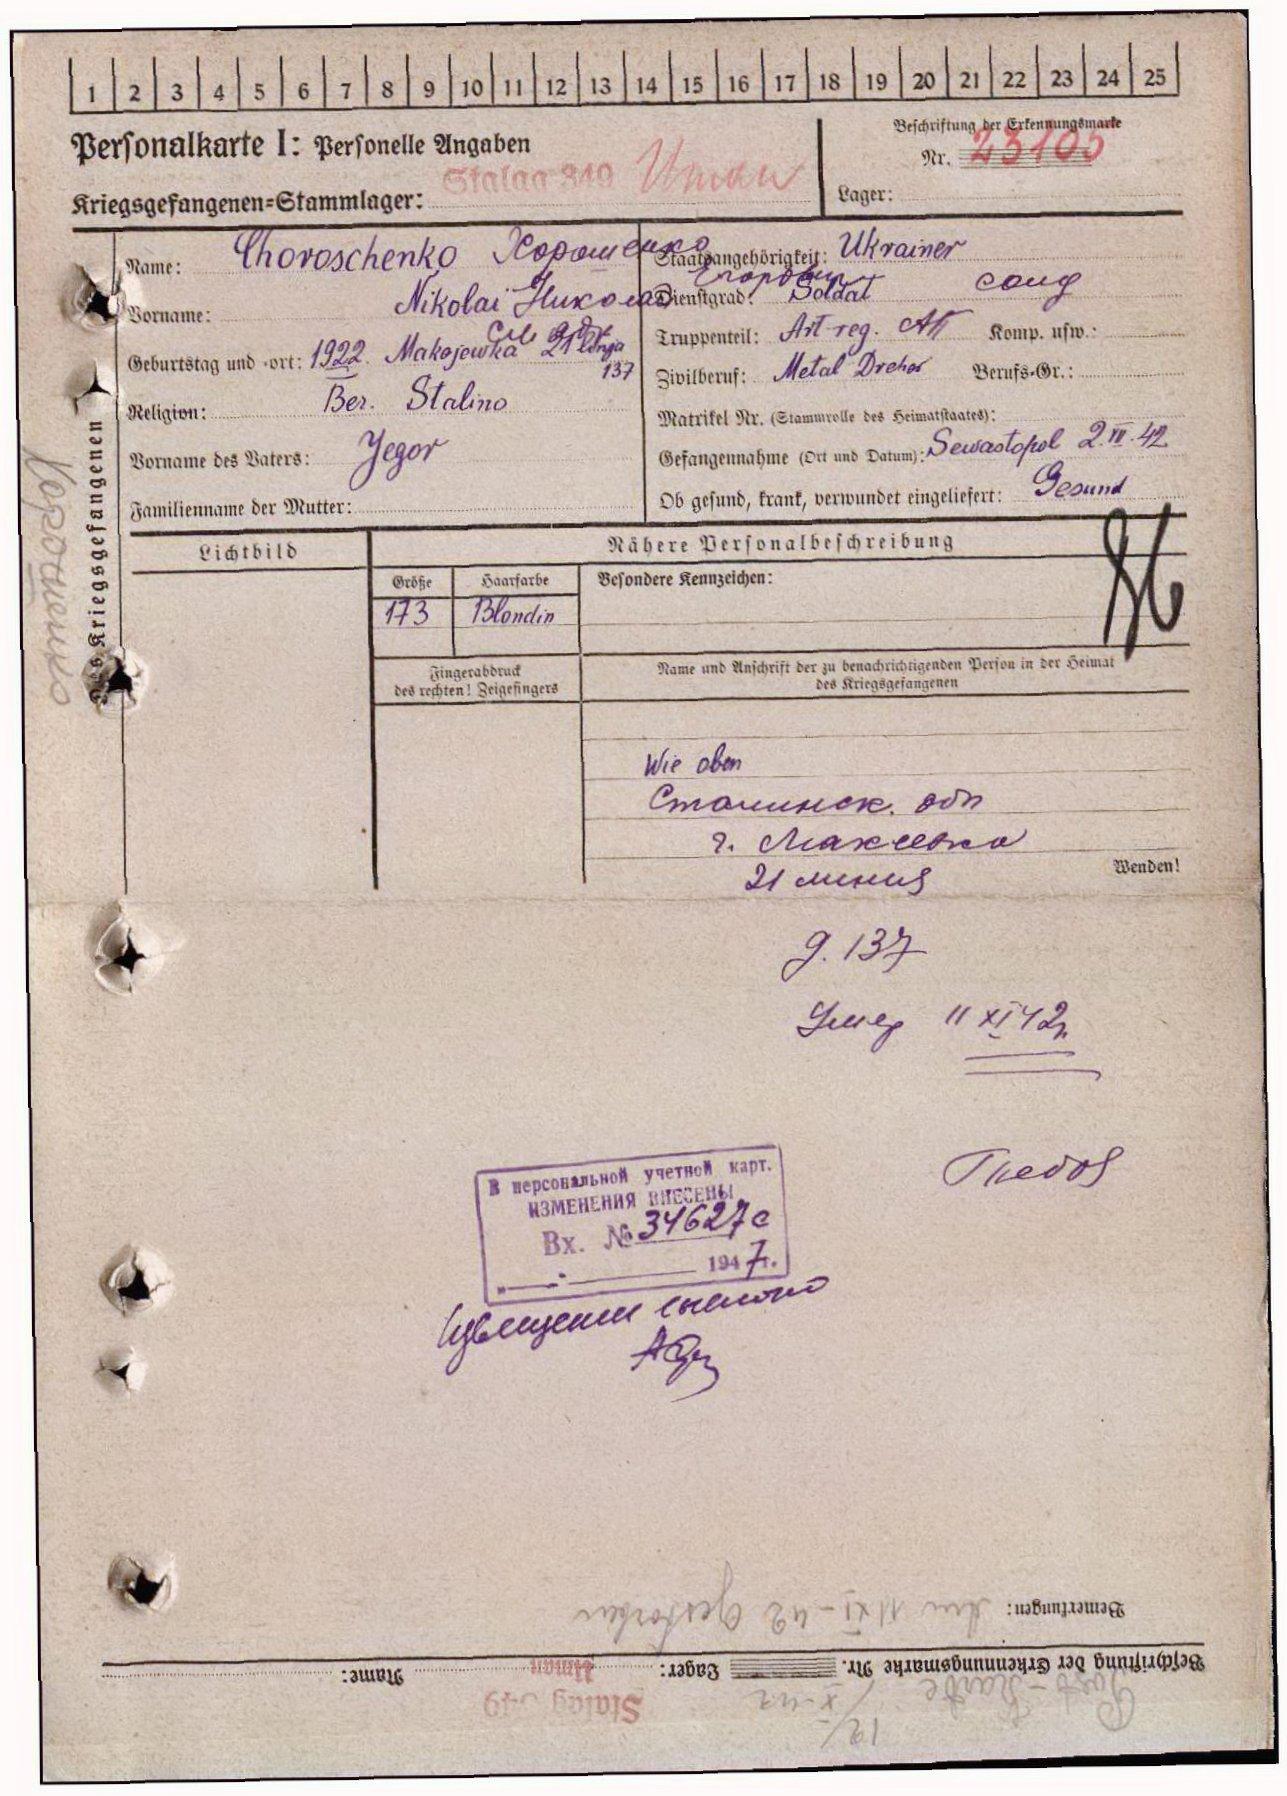 1 2 3 4 5 6 7 8 9 10 11 12 13 14 15 16 17 18 19 20 21 22 23 24 25
Personalkarte I: Personelle Angaben
Kriegsgefangenen=Stammlager: Stalag 349 Uman
Beschriftung der Erkennungsmarke
Nr. 23105
Lager:
des Kriegsgefangenen
Name: Choroschenko Хорошенко
Vorname: Nikolai Николай Егорович
Geburtstag und -ort: 1922 Makejewka 21 Linja
137
Religion: Ber. Stalino
Vorname des Vaters: Jegor
Familienname der Mutter:
Staatsangehörigkeit: Ukrainer
Dienstgrad: Soldat солд
Truppenteil: Art-reg. Komp. usw.:
Zivilberuf: Metal Dreher Berufs-Gr.:
Matrikel Nr. (Stammrolle des Heimatstaates):
Gefangennahme (Ort und Datum): Sewastopol 2.VII.42
Ob gesund, krank, verwundet eingeliefert: Gesund
Lichtbild
Nähere Personalbeschreibung
Größe Haarfarbe Besondere Kennzeichen:
173 Blondin
Fingerabdruck
des rechten! Zeigefingers
Name und Anschrift der zu benachrichtigenden Person in der Heimat
des Kriegsgefangenen
Wie oben
Сталинск. обл
г. Макеевка
21 линия
Wenden!
д. 137
Умер 11 XI 42г.
В персональной учетной карт.
ИЗМЕНЕНИЯ ВНЕСЕНЫ
Вх. № 34627с
1947г.
Bemerkungen: Am 11 XI-42 Gestorben
Beschriftung der Erkennungsmarke Nr. Lager: Uman Name:
Stalag 349